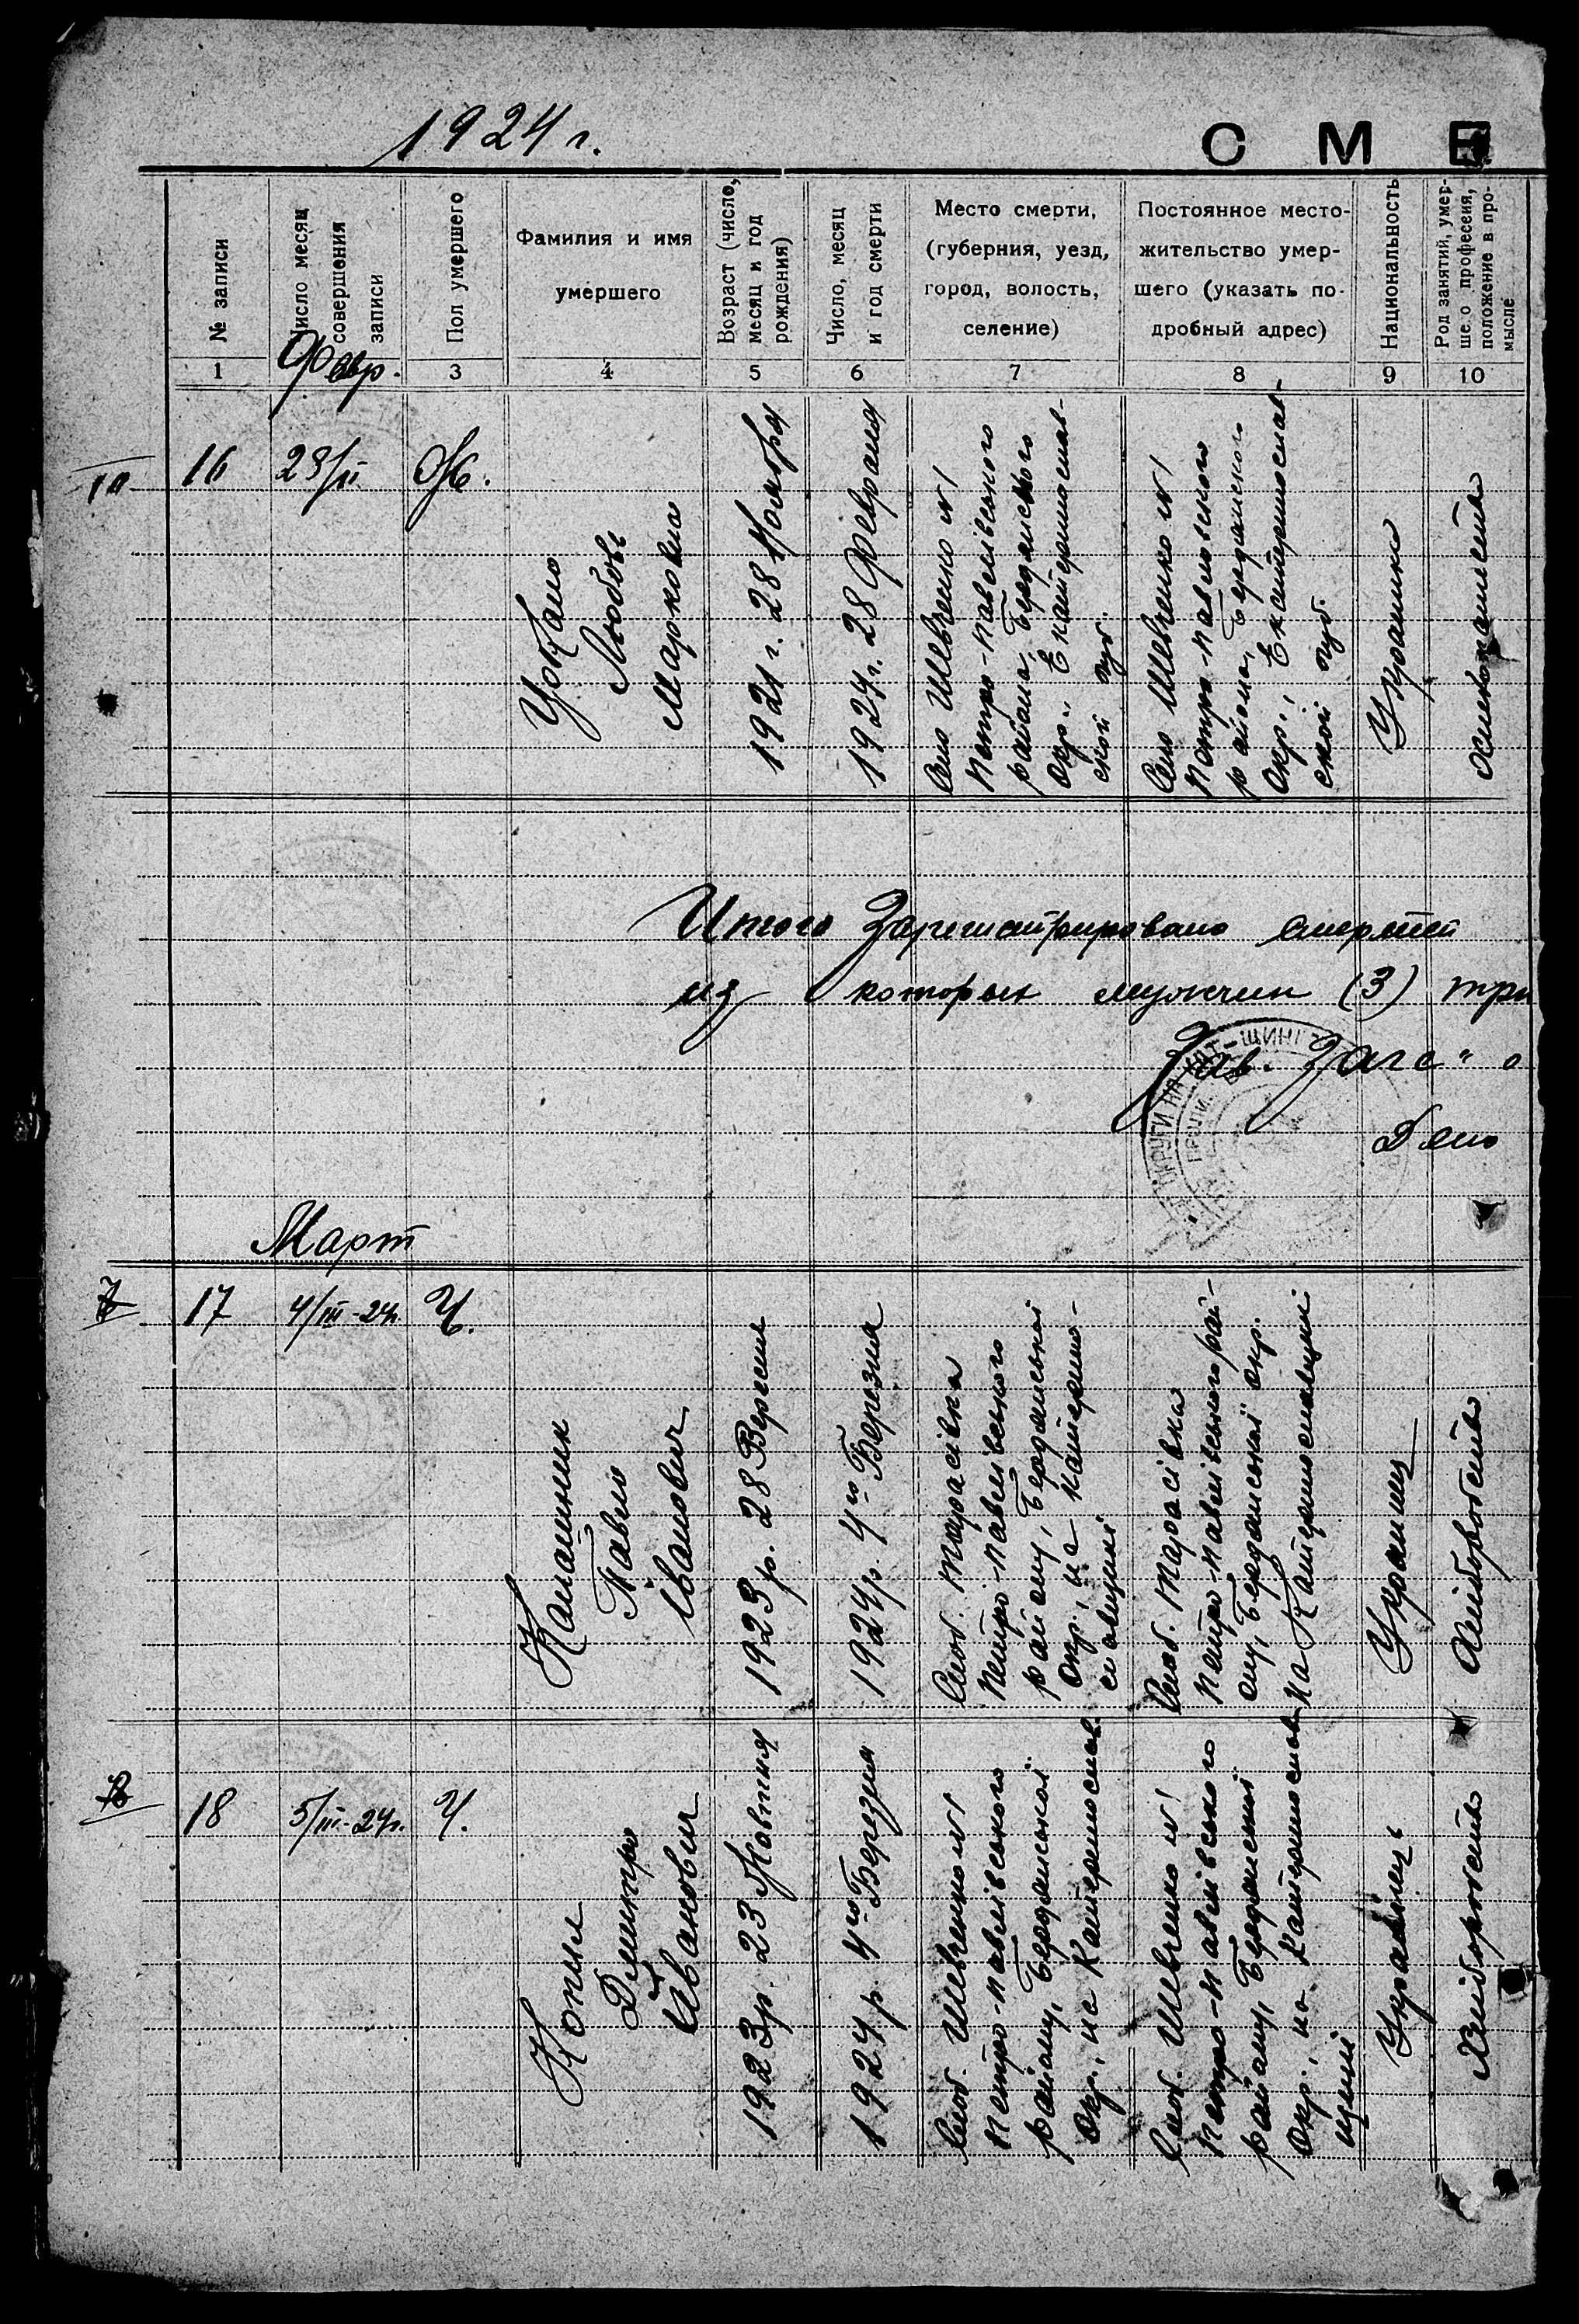 1924 г.
С М Е
№ записи
Число месяц
совершения
записи
Пол умершего
Фамилия и имя
умершего
Возраст (число,
месяц и год
рождения)
Число, месяц
и год смерти
Место смерти,
(губерния, уезд,
город, волость,
селение)
Постоянное место-
жительство умер-
шего (указать по-
дробный адрес)
Национальность
Род занятий, умер-
ше.о профессия,
положение в про-
мысле
1
3
4
5
6
7
8
9
10
Февр.
16
23/II
Ж.
Любовь
Марковна
1921 г. 28 Ноября
1924 г. 28 Февраля
Село Шевченко №1
Петро-Павлівського
района, Бердянського
Окр., Екатеринослав-
ской губ.
Село Шевченко №1
Петро-Павловского
района, Бердянского
Окр., Екатеринослав-
ской губ.
Украинка
Итого Зарегистрировано смертей
из которых мужчин (3) три
Зав. Загс"о
Дело
Март
17
4/III-24р.
Ч.
Калашник
Павло
Іванович
1923 р. 28 Вересня
1924 р. 4го Березня
Слоб. Тарасівка
Петро-Павлівського
району, Бердянської
Окр., на Катерино-
славщині
Слоб. Тарасівка
Петро-Павлівського рай-
ону, Бердянської Окр.
на Катеринославщині
Украинец
Хліборобство
18
5/III-24р.
Ч.
Копил
Дмитро
Іванович
1923 р. 23 Жовтня
1924 р. 4го Березня
Слоб. Шевченко №1
Петро-Павлівського
району, Бердянської
Окр., на Катеринослав
Слоб. Шевченко №1
Петро-Павлівського
району, Бердянської
Окр., на Катеринослав
щині
Українець
Хліборобство